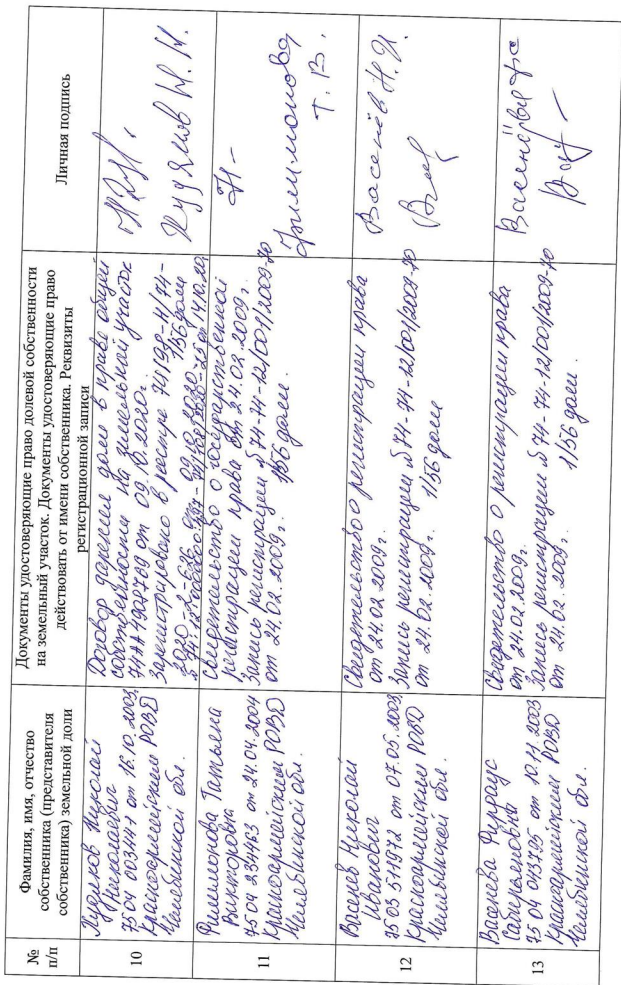 №
п/п
Фамилия, имя, отчество
собственника (представителя
собственника) земельной доли
Документы удостоверяющие право долевой собственности
на земельный участок. Документы удостоверяющие право
действовать от имени собственника. Реквизиты
регистрационной записи
Личная подпись
10
Николай
Николаевич
75 04 003444 от 16.10.2003
Красноармейским РОВД
Челябинской обл.
Договор дарения доли в праве общей
собственности на земельный участок
74АА 4902789 от 09.10.2020г.
Зарегистрировано в реестре 74/198-н/74-
2020-2-626 от 09.10.2020
1/56 доли
Кудряшов Н.Н.
11
Филимонова Татьяна
Викторовна
75 04 234463 от 24.04.2004
Красноармейским РОВД
Челябинской обл.
Свидетельство о государственной
регистрации права от 24.02.2009г.
Запись регистрации №74-74-12/001/2009-70
от 24.02.2009г. 1/56 доли.
Филимонова
Т.В.
12
Васенёв Николай
Иванович
75 03 571972 от 07.05.2003
Красноармейским РОВД
Челябинской обл.
Свидетельство о регистрации права
от 24.02.2009г.
Запись регистрации №74-74-12/001/2009-70
от 24.02.2009г. 1/56 доли
Васенёв Н.И.
13
Васенёва
75 04 043795 от 10.11.2003
Красноармейским РОВД
Челябинской обл.
Свидетельство о регистрации права
от 24.02.2009г.
Запись регистрации №74-74-12/001/2009-70
от 24.02.2009г. 1/56 доли.